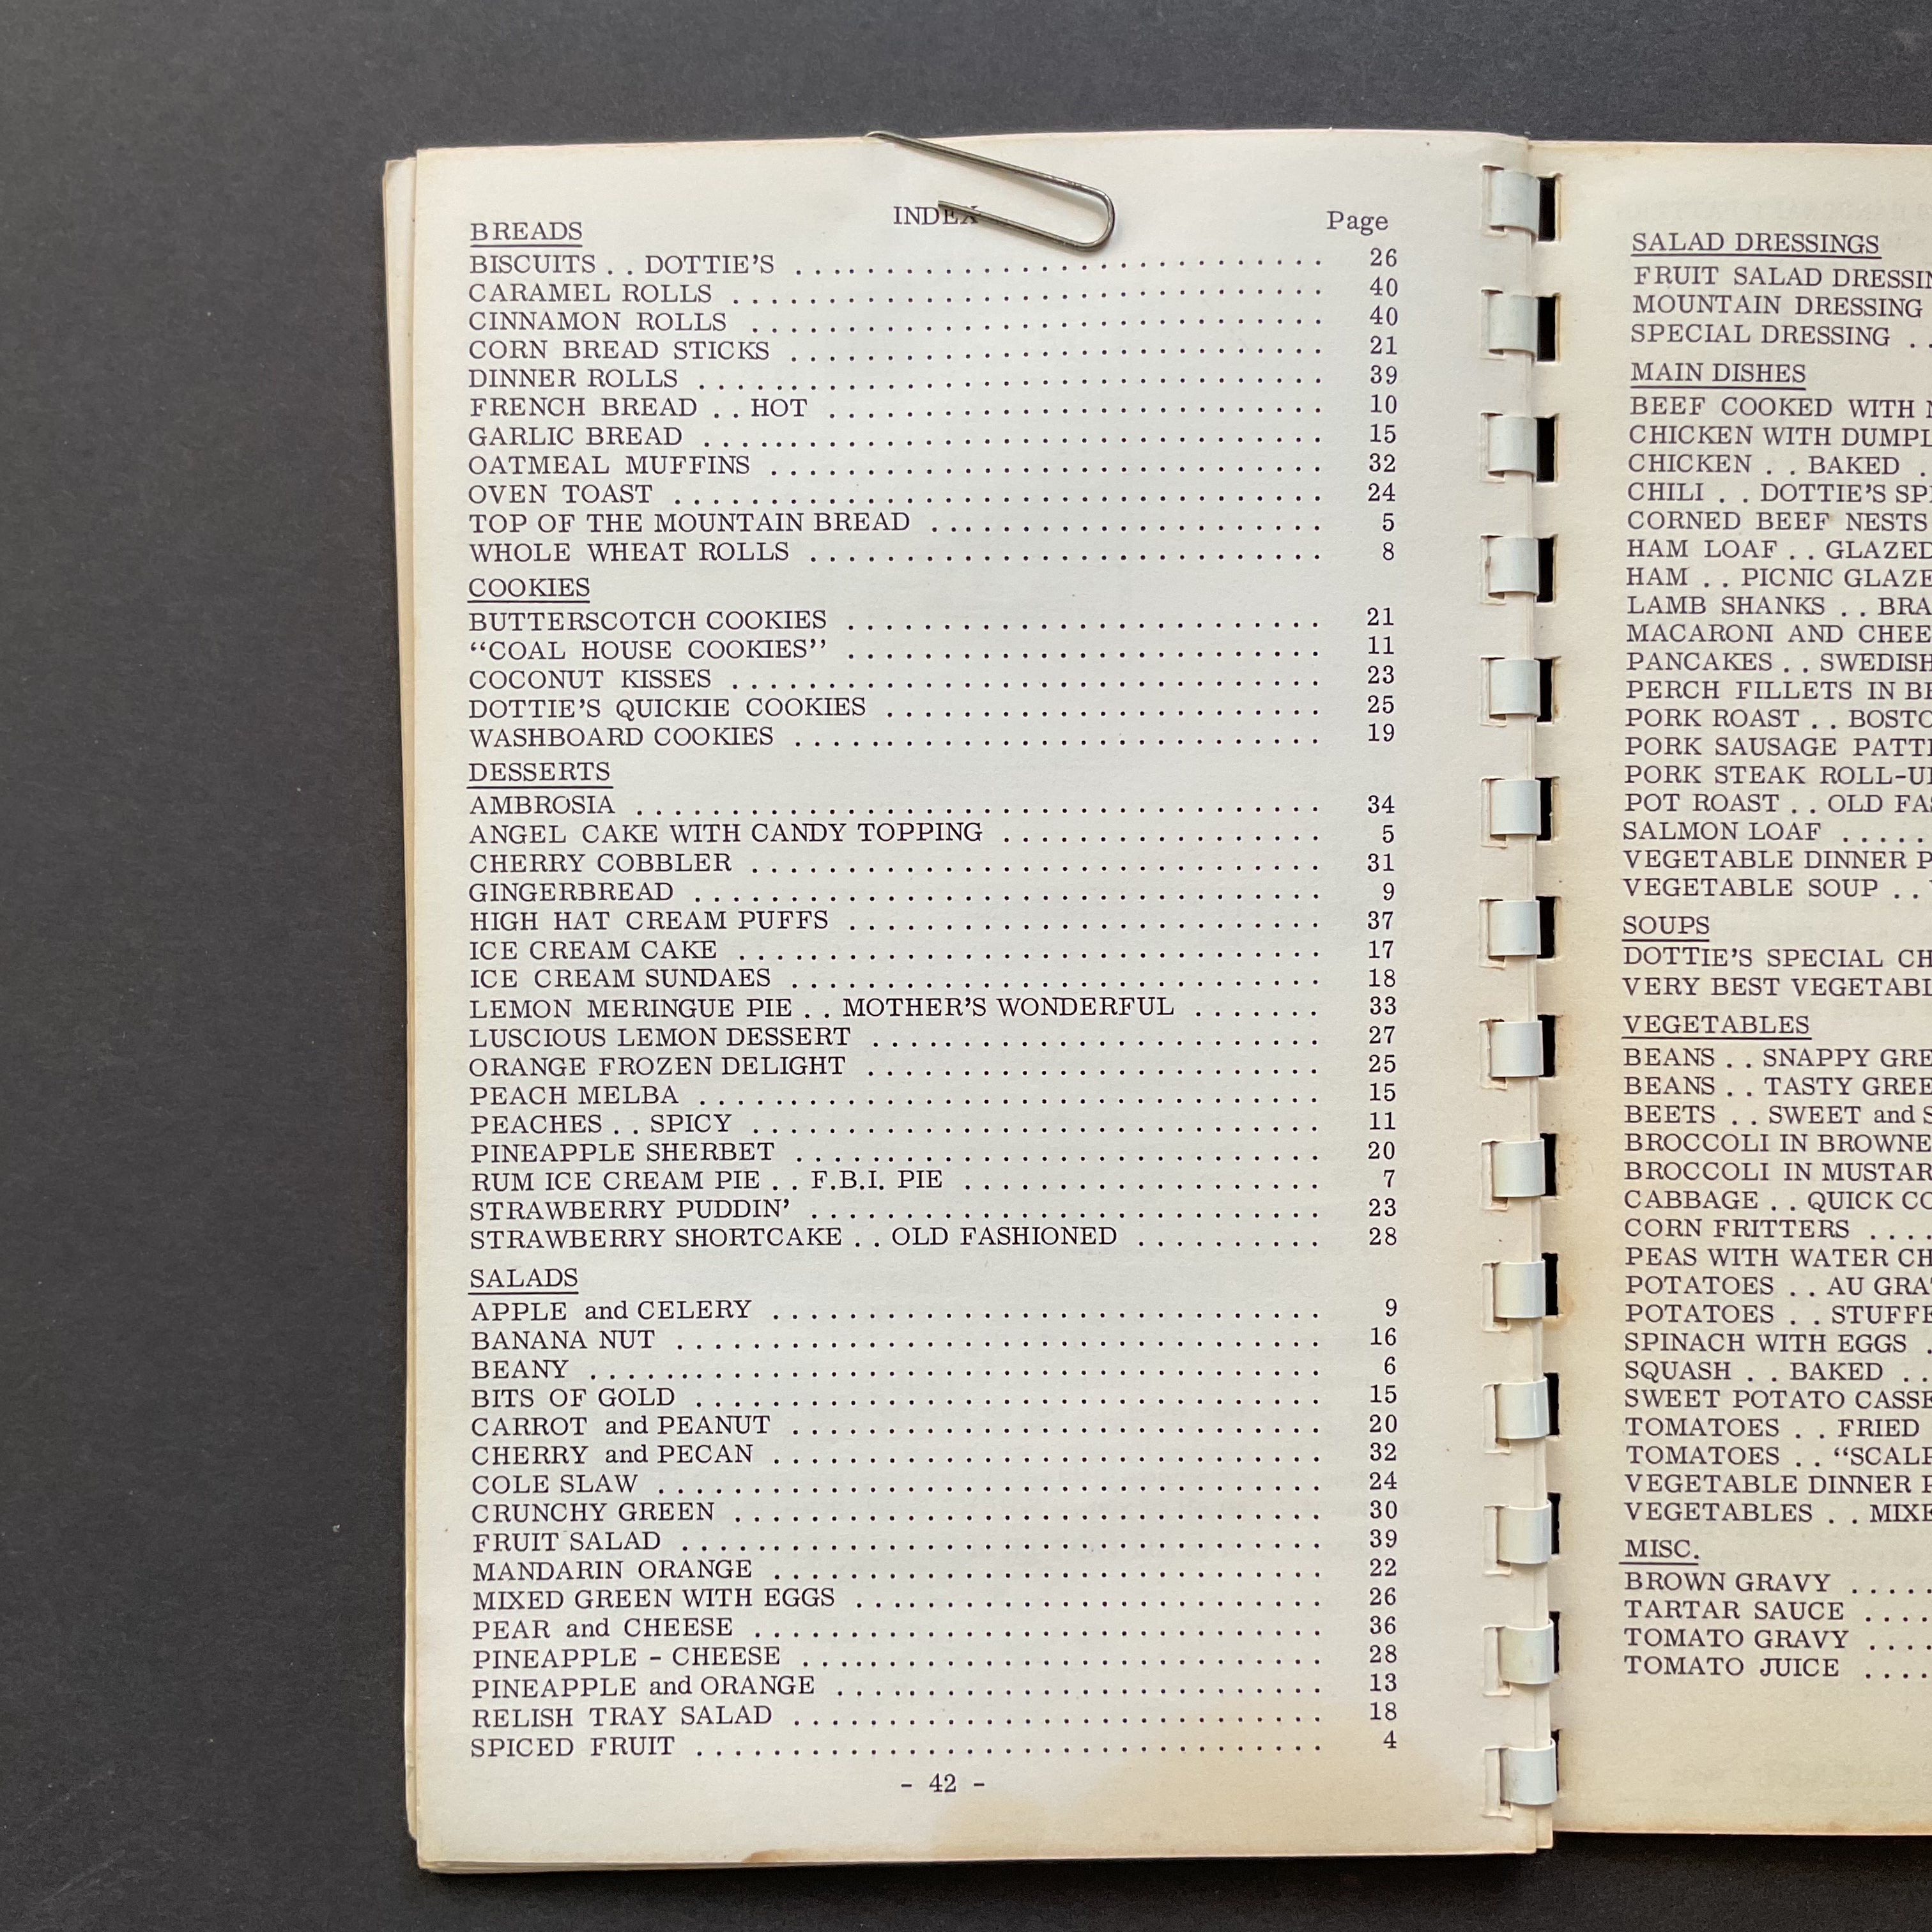 INDEX
Page
BREADS
BISCUITS . . DOTTIE'S . . . . . . . . . . . . . . . . . . . . . . . . . . . . 26
CARAMEL ROLLS . . . . . . . . . . . . . . . . . . . . . . . . . . . . . . . 40
CINNAMON ROLLS . . . . . . . . . . . . . . . . . . . . . . . . . . . . . . 40
CORN BREAD STICKS . . . . . . . . . . . . . . . . . . . . . . . . . . . . 21
DINNER ROLLS . . . . . . . . . . . . . . . . . . . . . . . . . . . . . . . . 39
FRENCH BREAD . . HOT . . . . . . . . . . . . . . . . . . . . . . . . . . 10
GARLIC BREAD . . . . . . . . . . . . . . . . . . . . . . . . . . . . . . . . 15
OATMEAL MUFFINS . . . . . . . . . . . . . . . . . . . . . . . . . . . . . 32
OVEN TOAST . . . . . . . . . . . . . . . . . . . . . . . . . . . . . . . . . 24
TOP OF THE MOUNTAIN BREAD . . . . . . . . . . . . . . . . . . . . 5
WHOLE WHEAT ROLLS . . . . . . . . . . . . . . . . . . . . . . . . . . . 8
COOKIES
BUTTERSCOTCH COOKIES . . . . . . . . . . . . . . . . . . . . . . . . . 21
“COAL HOUSE COOKIES” . . . . . . . . . . . . . . . . . . . . . . . . . 11
COCONUT KISSES . . . . . . . . . . . . . . . . . . . . . . . . . . . . . . . 23
DOTTIE'S QUICKIE COOKIES . . . . . . . . . . . . . . . . . . . . . . . 25
WASHBOARD COOKIES . . . . . . . . . . . . . . . . . . . . . . . . . . . . 19
DESSERTS
AMBROSIA . . . . . . . . . . . . . . . . . . . . . . . . . . . . . . . . . . . . 34
ANGEL CAKE WITH CANDY TOPPING . . . . . . . . . . . . . . . . . 5
CHERRY COBBLER . . . . . . . . . . . . . . . . . . . . . . . . . . . . . . 31
GINGERBREAD . . . . . . . . . . . . . . . . . . . . . . . . . . . . . . . . . 9
HIGH HAT CREAM PUFFS . . . . . . . . . . . . . . . . . . . . . . . . . 37
ICE CREAM CAKE . . . . . . . . . . . . . . . . . . . . . . . . . . . . . . . 17
ICE CREAM SUNDAES . . . . . . . . . . . . . . . . . . . . . . . . . . . . 18
LEMON MERINGUE PIE . . MOTHER'S WONDERFUL . . . . . . . 33
LUSCIOUS LEMON DESSERT . . . . . . . . . . . . . . . . . . . . . . . . 27
ORANGE FROZEN DELIGHT . . . . . . . . . . . . . . . . . . . . . . . . 25
PEACH MELBA . . . . . . . . . . . . . . . . . . . . . . . . . . . . . . . . . 15
PEACHES . . SPICY . . . . . . . . . . . . . . . . . . . . . . . . . . . . . . 11
PINEAPPLE SHERBET . . . . . . . . . . . . . . . . . . . . . . . . . . . . 20
RUM ICE CREAM PIE . . F.B.I. PIE . . . . . . . . . . . . . . . . . . . 7
STRAWBERRY PUDDIN' . . . . . . . . . . . . . . . . . . . . . . . . . . . 23
STRAWBERRY SHORTCAKE . . OLD FASHIONED . . . . . . . . . . 28
SALADS
APPLE and CELERY . . . . . . . . . . . . . . . . . . . . . . . . . . . . . 9
BANANA NUT . . . . . . . . . . . . . . . . . . . . . . . . . . . . . . . . . . 16
BEANY . . . . . . . . . . . . . . . . . . . . . . . . . . . . . . . . . . . . . . . 6
BITS OF GOLD . . . . . . . . . . . . . . . . . . . . . . . . . . . . . . . . . 15
CARROT and PEANUT . . . . . . . . . . . . . . . . . . . . . . . . . . . . 20
CHERRY and PECAN . . . . . . . . . . . . . . . . . . . . . . . . . . . . . 32
COLE SLAW . . . . . . . . . . . . . . . . . . . . . . . . . . . . . . . . . . . 24
CRUNCHY GREEN . . . . . . . . . . . . . . . . . . . . . . . . . . . . . . . 30
FRUIT SALAD . . . . . . . . . . . . . . . . . . . . . . . . . . . . . . . . . . 39
MANDARIN ORANGE . . . . . . . . . . . . . . . . . . . . . . . . . . . . . 22
MIXED GREEN WITH EGGS . . . . . . . . . . . . . . . . . . . . . . . . . 26
PEAR and CHEESE . . . . . . . . . . . . . . . . . . . . . . . . . . . . . . 36
PINEAPPLE - CHEESE . . . . . . . . . . . . . . . . . . . . . . . . . . . . 28
PINEAPPLE and ORANGE . . . . . . . . . . . . . . . . . . . . . . . . . . 13
RELISH TRAY SALAD . . . . . . . . . . . . . . . . . . . . . . . . . . . . 18
SPICED FRUIT . . . . . . . . . . . . . . . . . . . . . . . . . . . . . . . . . 4
- 42 -
SALAD DRESSINGS
FRUIT SALAD DRESSIN
MOUNTAIN DRESSING
SPECIAL DRESSING . .
MAIN DISHES
BEEF COOKED WITH
CHICKEN WITH DUMPL
CHICKEN . . BAKED .
CHILI . . DOTTIE'S SP
CORNED BEEF NESTS
HAM LOAF . . GLAZED
HAM . . PICNIC GLAZE
LAMB SHANKS . . BRA
MACARONI AND CHEE
PANCAKES . . SWEDISH
PERCH FILLETS IN B
PORK ROAST . . BOSTO
PORK SAUSAGE PATTI
PORK STEAK ROLL-U
POT ROAST . . OLD FAS
SALMON LOAF . . . . .
VEGETABLE DINNER P
VEGETABLE SOUP . .
SOUPS
DOTTIE'S SPECIAL CH
VERY BEST VEGETABL
VEGETABLES
BEANS . . SNAPPY GRE
BEANS . . TASTY GREE
BEETS . . SWEET and S
BROCCOLI IN BROWNE
BROCCOLI IN MUSTAR
CABBAGE . . QUICK CO
CORN FRITTERS . . . .
PEAS WITH WATER CH
POTATOES . . AU GRA
POTATOES . . STUFFE
SPINACH WITH EGGS .
SQUASH . . BAKED . .
SWEET POTATO CASSE
TOMATOES . . FRIED
TOMATOES . . “SCALP
VEGETABLE DINNER P
VEGETABLES . . MIXE
MISC.
BROWN GRAVY . . . . .
TARTAR SAUCE . . . .
TOMATO GRAVY . . . .
TOMATO JUICE . . . .